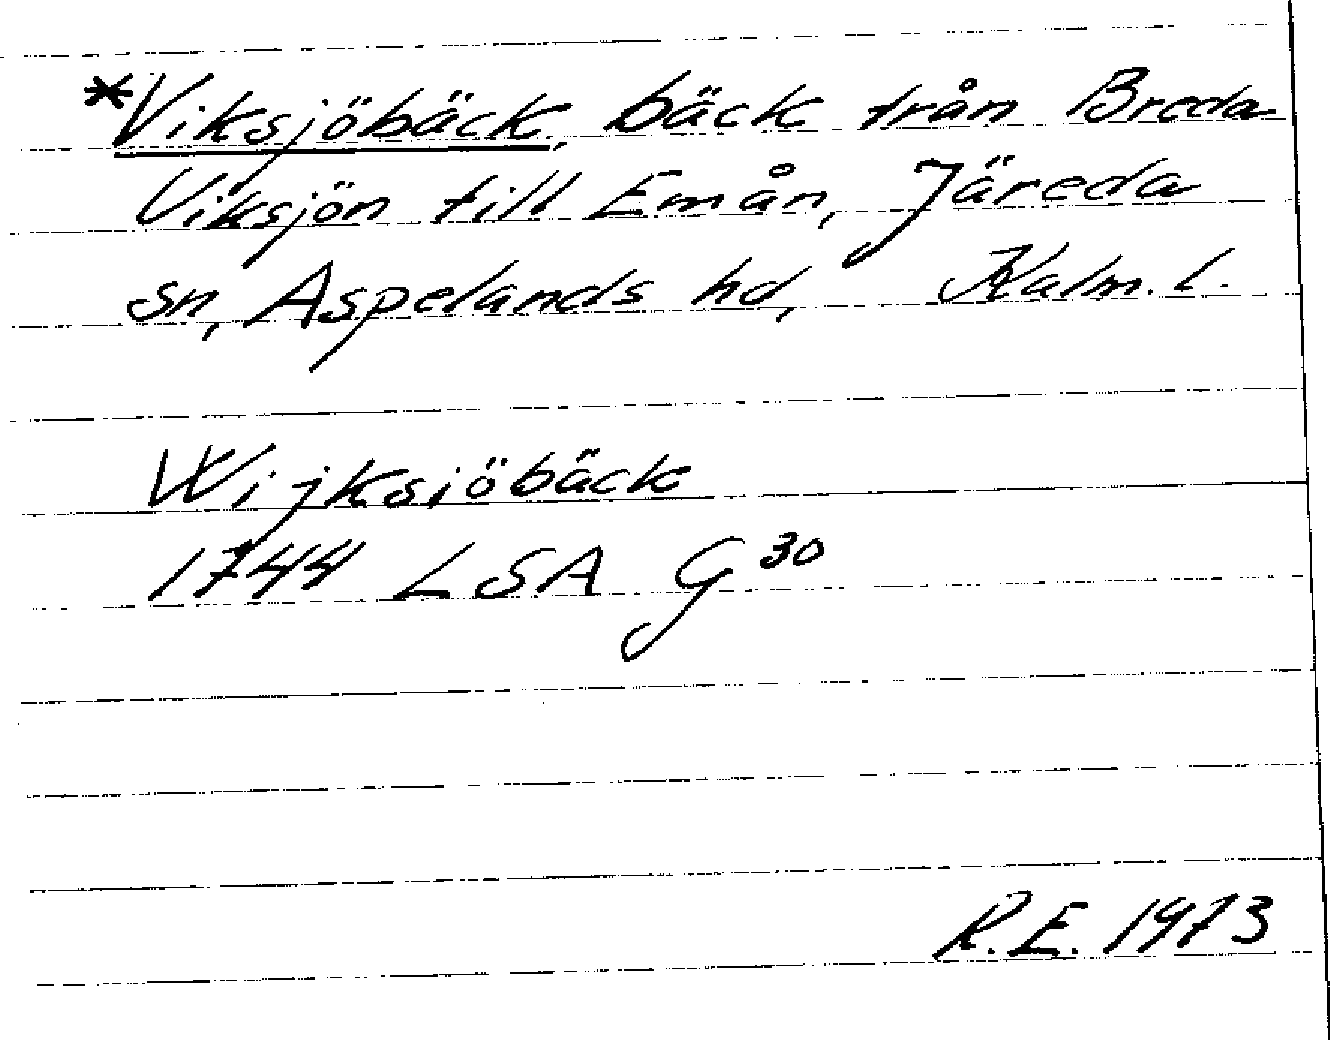 *Viksjöbäck, bäck från Breda
Viksjön till Emån, Järeda
sn, Aspelands hd, Kalm. l.
Wijksiöbäck
1744 LSA G 30
R.E. 1973